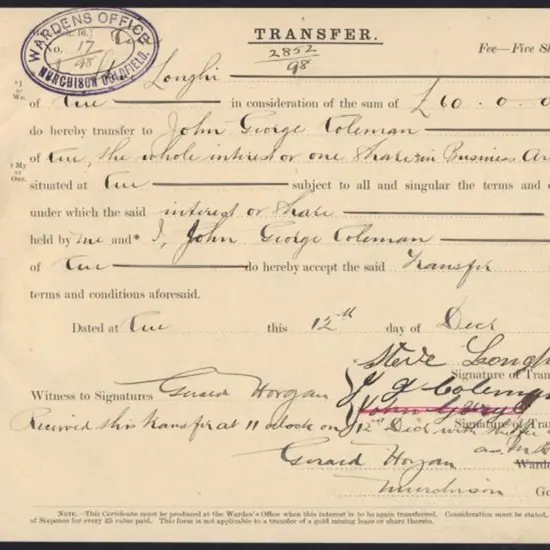 WARDENS OFFICE
MURCHISON GOLDFIELD.
No. 17
98
TRANSFER.
2852
98
Fee—Five Sh
*I or We.
Longhi
of Cue in consideration of the sum of £60.0.0
do hereby transfer to John George Coleman
†My or Our.
of Cue, the whole interest or one Share in Business Ar
situated at Cue subject to all and singular the terms and
under which the said interest or Share
held by me and* I, John George Coleman
of Cue do hereby accept the said Transfer
terms and conditions aforesaid.
Dated at Cue this 12th day of Decr
Steve Longh
Signature of Tran
J G Coleman
Witness to Signatures Gerard Horgan
Signature of Tran
Received this transfer at 11 oclock on 12th Decr with the fee
Gerard Horgan Warde
Murchison Go
NOTE.—This Certificate must be produced at the Warden's Office when this interest is to be again transferred. Consideration must be stated,
of Sixpence for every £5 value paid. This form is not applicable to a transfer of a gold mining lease or share therein.